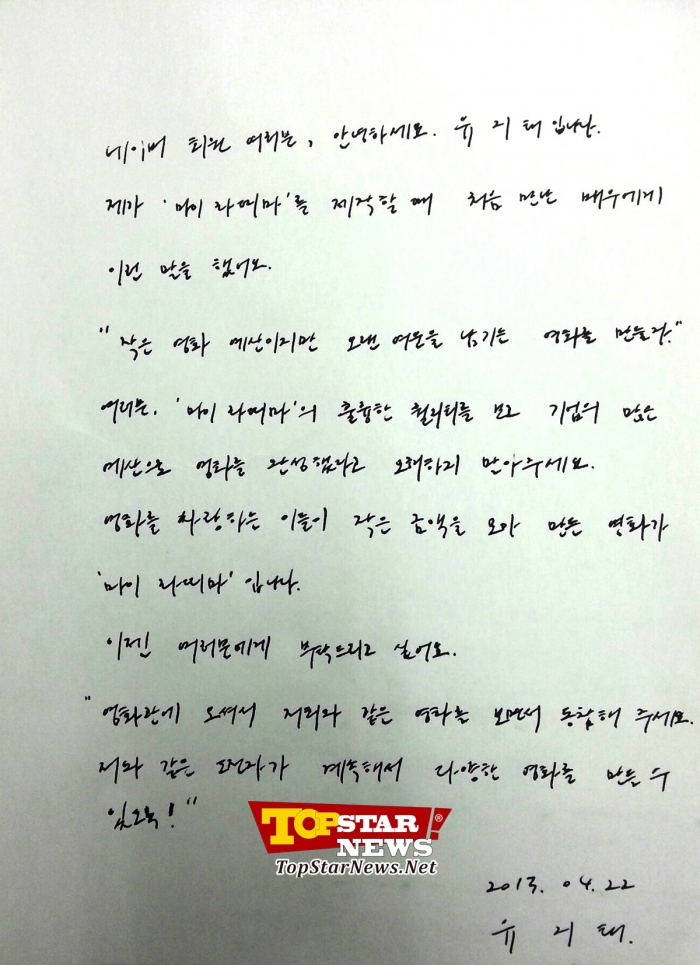 네이버 회원 여러분, 안녕하세요. 유지태입니다.
제가 '마이 라띠마'를 제작할 때 처음 만난 배우에게
이런 말을 했어요.
"작은 영화 예산이지만 오랜 여운을 남기는 영화를 만들자."
여러분, '마이 라띠마'의 훌륭한 퀄리티를 보고 기업의 많은
예산으로 영화를 완성했다고 오해하지 말아주세요.
영화를 사랑하는 이들이 작은 금액을 모아 만든 영화가
'마이 라띠마' 입니다.
이젠 여러분에게 부탁드리고 싶어요.
"영화관에 오셔서 저희와 같은 영화를 보면서 동참해 주세요.
저와 같은 도전자가 계속해서 다양한 영화를 만들 수
있도록!"
TOPSTAR NEWS!®
TopStarNews.Net
2013. 04. 22
유지태.